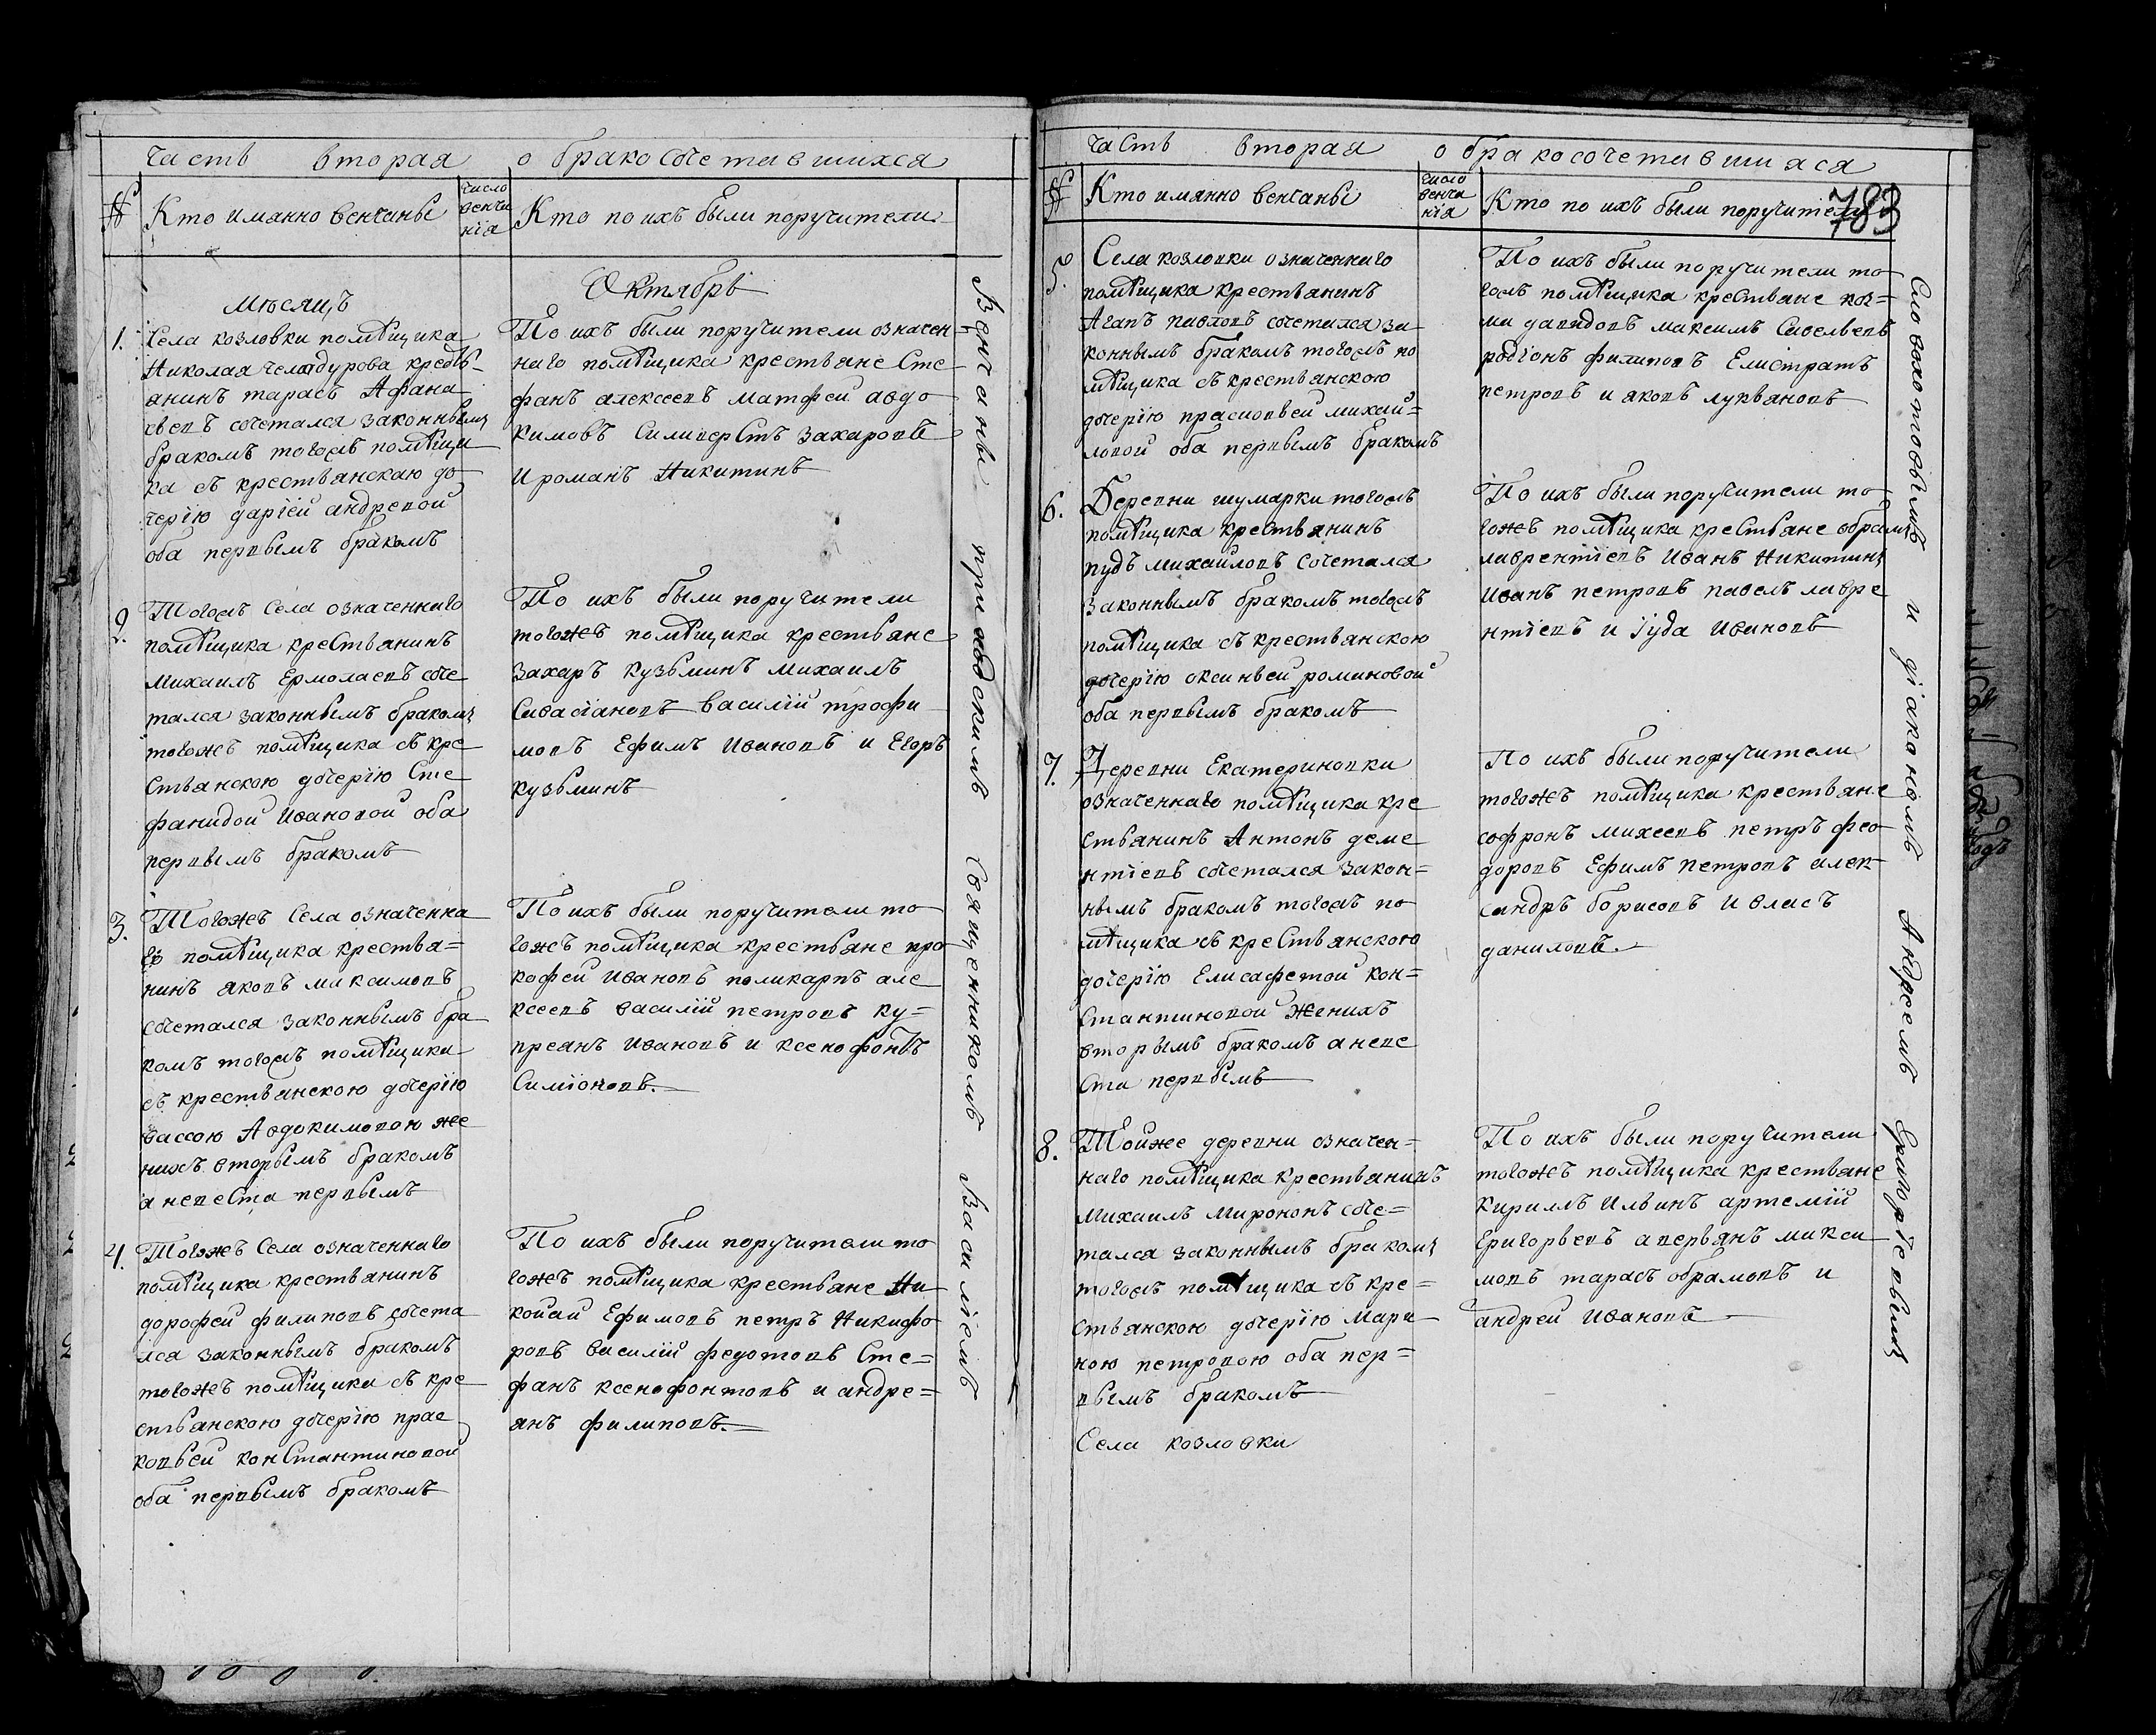 часть вторая о бракосочетавшихся
№
Кто имянно венчаны
число
венча
нїя
Кто по ихъ были поручители
Мѣсяцъ
Октябрь
1.
Села козловки помѣщика
Николая
анинъ тарасъ Афана
севъ сочетался законнымъ
бракомъ тогожъ помѣщи
ка съ крестьянскаю до
черїю дарїей андревой
оба первымъ бракомъ
По ихъ были поручители означен
наго помѣщика крестьяне Сте
фанъ алексеевъ матфей авдо
кимовъ Силиверстъ захаровъ
и романъ Никитинъ
2.
Тогожъ Села означеннаго
помѣщика крестьянинъ
михаилъ Ермолаевъ соче
тался законнымъ бракомъ
тогожъ помѣщика съ кре
стьянскою дочерїю Сте
фанидой Ивановой оба
первымъ бракомъ
По ихъ были поручители
тогожъ помѣщика крестьяне
захаръ кузьминъ михаилъ
Сивасїановъ василїй трофи
мовъ Ефимъ Ивановъ и Егоръ
кузьминъ
3.
Тогожъ Села означенна
го помѣщика крестья=
нинъ яковъ максимовъ
сочетался законнымъ бра
комъ тогожъ помѣщика
съ крестьянскою дочерїю
вассою Авдокимовою же
нихъ вторымъ бракомъ
а невеста первымъ
По ихъ были поручители то
гожъ помѣщика крестьяне про
кофей Ивановъ поликарпъ але
ксеевъ василїй петровъ ку=
преянъ Ивановъ и ксенофонтъ
Симїоновъ.
4.
Тогожъ Села означеннаго
помѣщика крестьянинъ
дорофей филиповъ сочета
лся законнымъ бракомъ
тогожъ помѣщика съ кре
стьянскою дочерїю прас
ковьей константиновой
оба первымъ бракомъ
По ихъ были поручители то
гожъ помѣщика крестьяне Ни
колай Ефимовъ петръ Никифо
ровъ василїй федотовъ Сте=
фанъ ксенофонтовъ и андре=
янъ филиповъ.
Венчаны приходскимъ Священникомъ Василїемъ
часть вторая о бракосочетавшихся
№
Кто имянно венчаны
число
венча
нїя
Кто по ихъ были поручители
783
5.
Села козловки означеннаго
помѣщика крестьянинъ
Агапъ павловъ сочетался за
коннымъ бракомъ тогожъ по
мѣщика съ крестьянскою
дочерїю прасковьей михай=
ловой оба первымъ бракомъ
По ихъ были поручители то
гожъ помѣщика крестьяне коз=
ма давидовъ максимъ Савельевъ
родїонъ филиповъ Елистратъ
петровъ и яковъ лукьяновъ
6.
Деревни шумарки тогожъ
помѣщика крестьянинъ
пудъ михаиловъ сочетался
законнымъ бракомъ тогожъ
помѣщика съ крестьянскою
дочерїю оксиньей романовой
оба первымъ бракомъ
По ихъ были поручители то
гожъ помѣщика крестьяне обрамъ
лаврентїевъ Иванъ Никитинъ
Иванъ петровъ павелъ лавре
нтїевъ и їуда Ивановъ
7.
Деревни Екатериновки
означеннаго помѣщика кре
стьянинъ Антонъ деме
нтїевъ сочетался закон=
нымъ бракомъ тогожъ по
мѣщика съ крестьянскою
дочерїю Елисафетой кон=
стантиновой женихъ
вторымъ бракомъ а неве
ста первымъ
По ихъ были поручители
тогожъ помѣщика крестьяне
софронъ михеевъ петръ фео
доровъ Ефимъ петровъ алек
сандръ борисовъ и власъ
даниловъ.
8.
Тойже деревни означен=
наго помѣщика крестьянинъ
Михаилъ Мирононъ соче=
тался законнымъ бракомъ
тогожъ помѣщика съ кре=
стьянскою дочерїю Мари
ною петровою оба пер=
вымъ бракомъ
Села козловки
По ихъ были поручители
тогожъ помѣщика крестьяне
кирилъ Ильинъ артемїй
Григорьевъ аверьянъ макси
мовъ тарасъ обрамовъ и
андрей Ивановъ
и дїакономъ Андреемъ